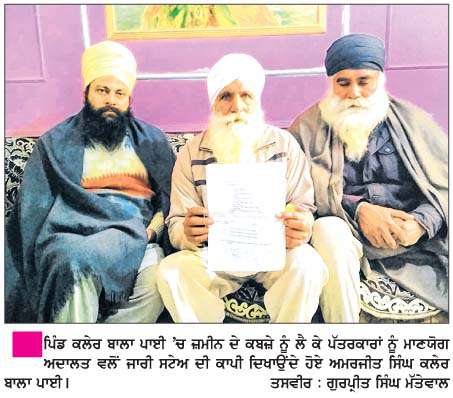 ਪਿੰਡ ਕਲੇਰ ਬਾਲਾ ਪਾਈ 'ਚ ਜ਼ਮੀਨ ਦੇ ਕਬਜ਼ੇ ਨੂੰ ਲੈ ਕੇ ਪੱਤਰਕਾਰਾਂ ਨੂੰ ਮਾਣਯੋਗ
ਅਦਾਲਤ ਵਲੋਂ ਜਾਰੀ ਸਟੇਅ ਦੀ ਕਾਪੀ ਦਿਖਾਉਂਦੇ ਹੋਏ ਅਮਰਜੀਤ ਸਿੰਘ ਕਲੇਰ
ਬਾਲਾ ਪਾਈ। ਤਸਵੀਰ : ਗੁਰਪ੍ਰੀਤ ਸਿੰਘ ਮੱਤੇਵਾਲ